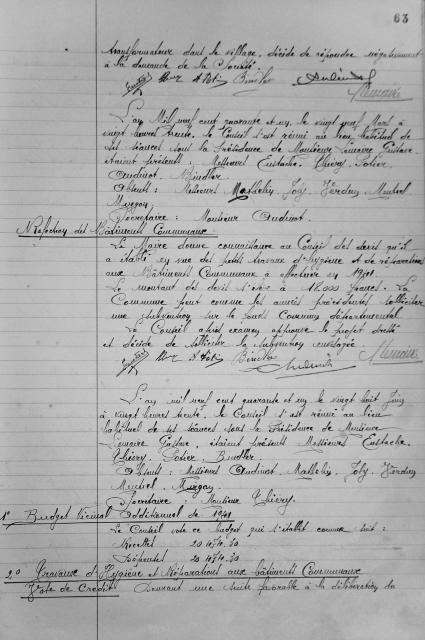 63
transformateur dans le village, décide de répondre négativement
à la demande de la Société.
L'an Mil neuf cent quarante et un, le vingt neuf Mars à
vingt heures trente, le Conseil s'est réuni au lieu habituel de
ses séances sous la Présidence de Monsieur Lemoire Gustave.
Etaient présents : Messieurs Eustache, Thiéry, Potier
Audinot, Bindler.
Absents : Messieurs Mathelin, Joly, Verdun, Muchel
Murgon.
Secrétaire : Monsieur Audinot.
Réfection des Bâtiments Communaux
Le Maire donne connaissance au Conseil des devis qu'il
a établi en vue des petits travaux d'hygiène et de réparations
aux Bâtiments Communaux à effectuer en 1941
Le montant des devis s'élève à 12.000 francs. La
Commune peut comme les années précédentes solliciter
une subvention sur le fonds commun départemental.
Le Conseil après examen, approuve le projet dressé
et décide de solliciter la subvention envisagée.
L'an mil neuf cent quarante et un le vingt huit Juin
à vingt heures trente, le Conseil s'est réuni au lieu
habituel de ses séances sous la Présidence de Monsieur
Lemoire Gustave, étaient présents Messieurs Eustache
Thiéry, Potier, Bindler.
Absents : Messieurs Audinot, Mathelin, Joly, Verdun
Muchel, Murgon.
Secrétaire : Monsieur Thiéry.
1° Budget Additionnel de 1941
Le Conseil vote ce budget qui s'établit comme suit :
Recettes
Dépenses
2° Travaux d'Hygiène et Réparations aux bâtiments Communaux
Vote de Crédit Donnant une suite favorable à la délibération du